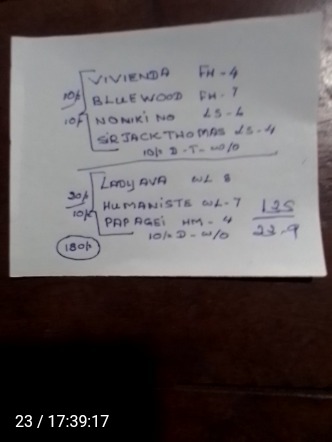 VIVIENDA FH-4
10/- BLUEWOOD FH-7
10/- NONIKI NO LS-6
SIR JACK THOMAS LS-4
10/- D-T-W/O
LADY AVA WL 8
20/- HUMANISTE WL-7 125
10/- PAPAGEI HM-4 22.9
10/- D-W/O
180/-
23 / 17:39:17